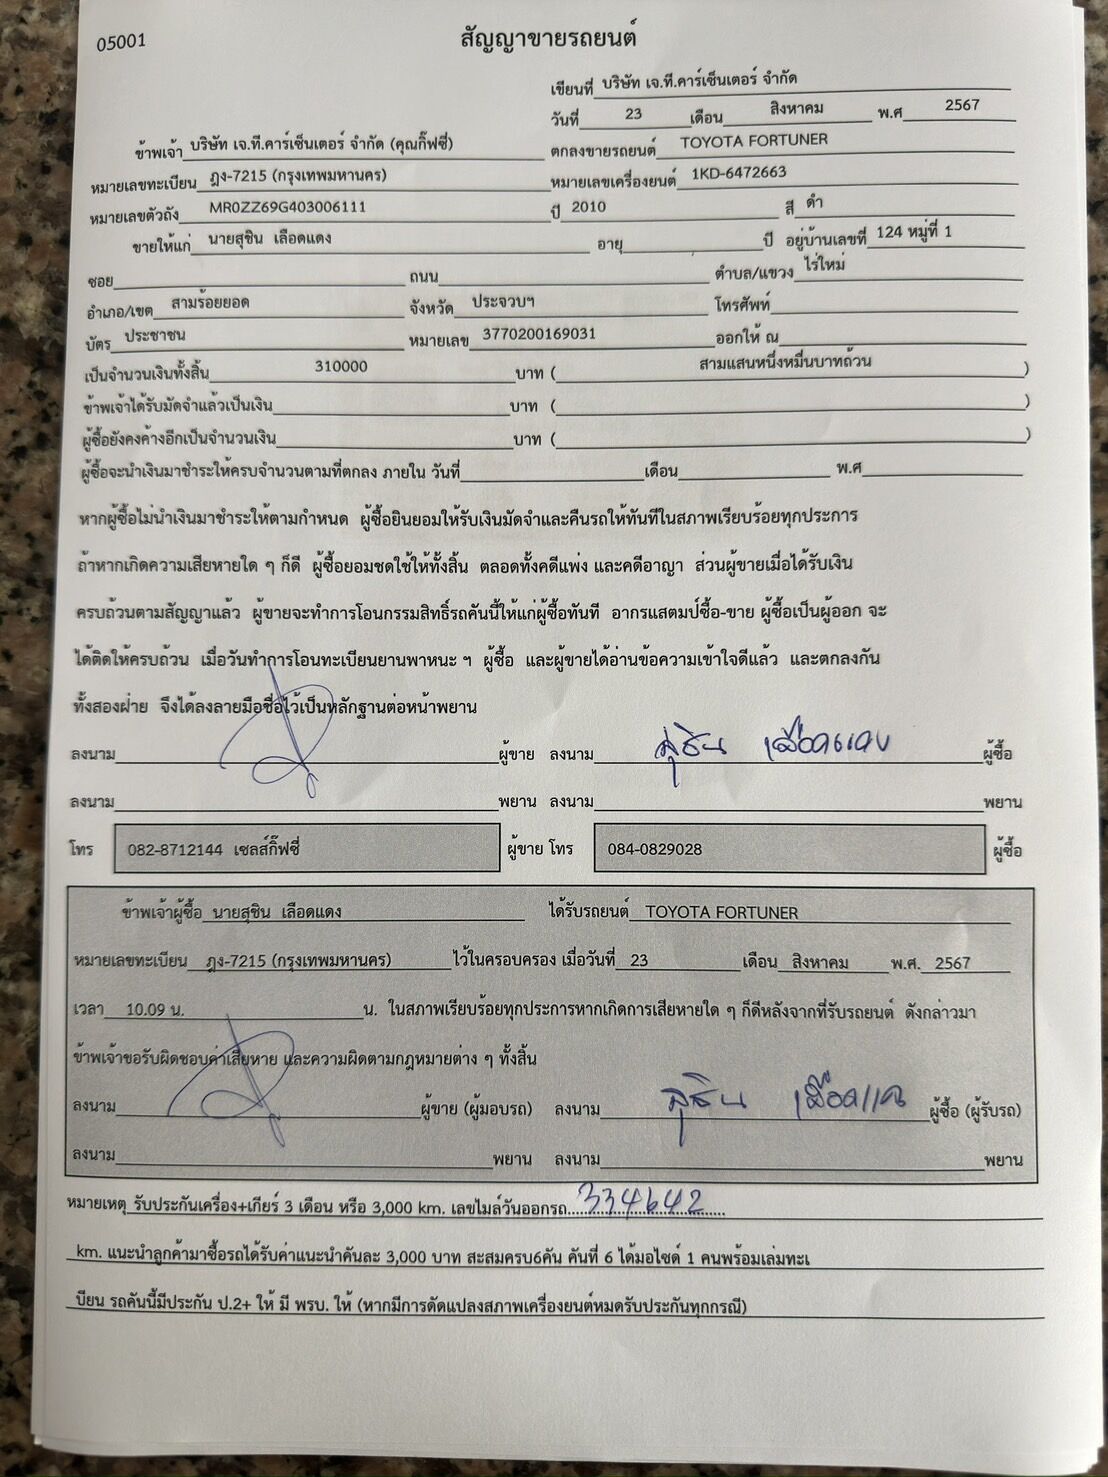 05001
สัญญาขายรถยนต์
เขียนที่ บริษัท เจ.ที.คาร์เซ็นเตอร์ จำกัด
วันที่ 23 เดือน สิงหาคม พ.ศ 2567
ข้าพเจ้า บริษัท เจ.ที.คาร์เซ็นเตอร์ จำกัด (คุณกิ๊ฟซี่) ตกลงขายรถยนต์ TOYOTA FORTUNER
หมายเลขทะเบียน ฎง-7215 (กรุงเทพมหานคร) หมายเลขเครื่องยนต์ 1KD-6472663
หมายเลขตัวถัง MR0ZZ69G403006111 ปี 2010 สี ดำ
ขายให้แก่ นายสุชิน เลือดแดง อายุ ปี อยู่บ้านเลขที่ 124 หมู่ที่ 1
ซอย ถนน ตำบล/แขวง ไร่ใหม่
อำเภอ/เขต สามร้อยยอด จังหวัด ประจวบฯ โทรศัพท์
บัตร ประชาชน หมายเลข 3770200169031 ออกให้ ณ
เป็นจำนวนเงินทั้งสิ้น 310000 บาท ( สามแสนหนึ่งหมื่นบาทถ้วน )
ข้าพเจ้าได้รับมัดจำแล้วเป็นเงิน บาท ( )
ผู้ซื้อยังคงค้างอีกเป็นจำนวนเงิน บาท ( )
ผู้ซื้อจะนำเงินมาชำระให้ครบจำนวนตามที่ตกลง ภายใน วันที่ เดือน พ.ศ
หากผู้ซื้อไม่นำเงินมาชำระให้ตามกำหนด ผู้ซื้อยินยอมให้รับเงินมัดจำและคืนรถให้ทันทีในสภาพเรียบร้อยทุกประการ
ถ้าหากเกิดความเสียหายใด ๆ ก็ดี ผู้ซื้อยอมชดใช้ให้ทั้งสิ้น ตลอดทั้งคดีแพ่ง และคดีอาญา ส่วนผู้ขายเมื่อได้รับเงิน
ครบถ้วนตามสัญญาแล้ว ผู้ขายจะทำการโอนกรรมสิทธิ์รถคันนี้ให้แก่ผู้ซื้อทันที อากรแสตมป์ซื้อ-ขาย ผู้ซื้อเป็นผู้ออก จะ
ได้ติดให้ครบถ้วน เมื่อวันทำการโอนทะเบียนยานพาหนะ ฯ ผู้ซื้อ และผู้ขายได้อ่านข้อความเข้าใจดีแล้ว และตกลงกัน
ทั้งสองฝ่าย จึงได้ลงลายมือชื่อไว้เป็นหลักฐานต่อหน้าพยาน
ลงนาม ผู้ขาย ลงนาม สุชิน เลือดแดง ผู้ซื้อ
ลงนาม พยาน ลงนาม พยาน
โทร 082-8712144 เซลส์กิ๊ฟซี่ ผู้ขาย โทร 084-0829028 ผู้ซื้อ
ข้าพเจ้าผู้ซื้อ นายสุชิน เลือดแดง ได้รับรถยนต์ TOYOTA FORTUNER
หมายเลขทะเบียน ฎง-7215 (กรุงเทพมหานคร) ไว้ในครอบครอง เมื่อวันที่ 23 เดือน สิงหาคม พ.ศ. 2567
เวลา 10.09 น. น. ในสภาพเรียบร้อยทุกประการหากเกิดการเสียหายใด ๆ ก็ดีหลังจากที่รับรถยนต์ ดังกล่าวมา
ข้าพเจ้าขอรับผิดชอบค่าเสียหาย และความผิดตามกฎหมายต่าง ๆ ทั้งสิ้น
ลงนาม ผู้ขาย (ผู้มอบรถ) ลงนาม สุชิน ผู้ซื้อ (ผู้รับรถ)
ลงนาม พยาน ลงนาม พยาน
หมายเหตุ รับประกันเครื่อง+เกียร์ 3 เดือน หรือ 3,000 km. เลขไมล์วันออกรถ 334642
km. แนะนำลูกค้ามาซื้อรถได้รับค่าแนะนำคันละ 3,000 บาท สะสมครบ6คัน คันที่ 6 ได้มอไซด์ 1 คนพร้อมเล่มทะเ
บียน รถคันนี้มีประกัน ป.2+ ให้ มี พรบ. ให้ (หากมีการดัดแปลงสภาพเครื่องยนต์หมดรับประกันทุกกรณี)